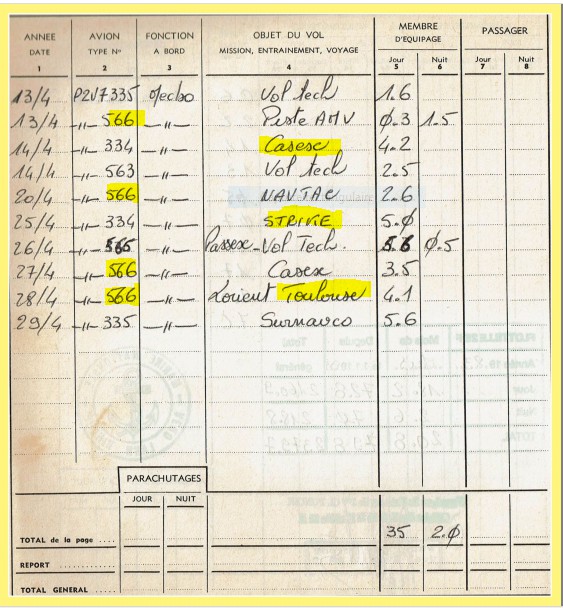 ANNEE AVION FONCTION OBJET DU VOL MEMBRE D'EQUIPAGE PASSAGER
DATE TYPE N° A BORD MISSION, ENTRAINEMENT, VOYAGE Jour Nuit Jour Nuit
1 2 3 4 5 6 7 8
13/4 P2V7 335 Vol tech 1.6
13/4 -"- 566 -"- Piste AMV Ø.3 1.5
14/4 -"- 334 -"- Casex 4.2
14/4 -"- 563 -"- Vol tech 2.5
20/4 -"- 566 -"- NAVTAC 2.6
25/4 -"- 334 -"- STRIKE 5.Ø
26/4 -"- 565 -"- Passex-Vol Tech. 5.6 Ø.5
27/4 -"- 566 -"- Casex 3.5
28/4 -"- 566 -"- Lorient Toulouse 4.1
29/4 -"- 335 -"- Surnavco 5.6
PARACHUTAGES
JOUR NUIT
TOTAL de la page .... 35 2.Ø
REPORT ....
TOTAL GENERAL ....